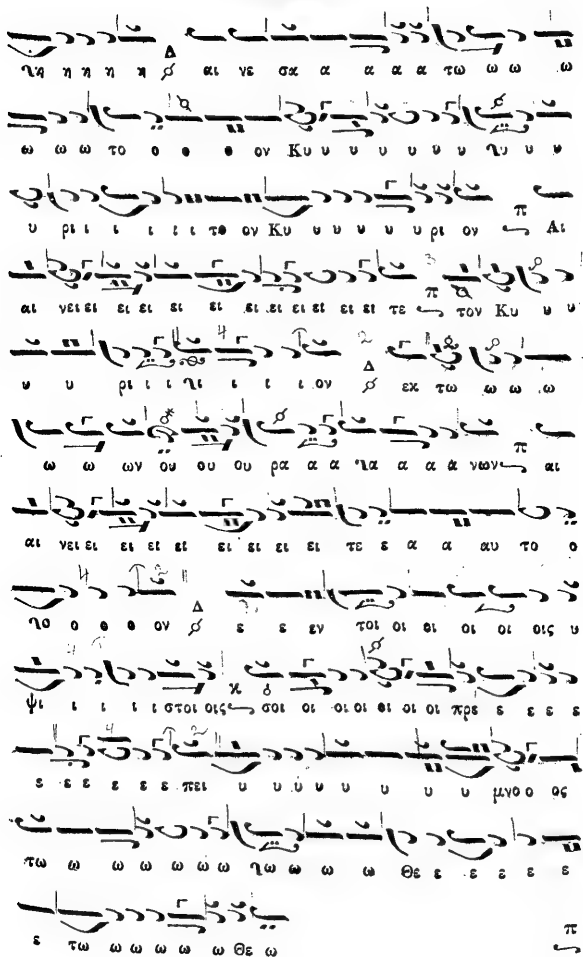 χη η η η η Δ αι νε σα α α α α τω ω ω ω
ω ω ω το ο ο ο ον Κυ υ υ υ υ υ υ χυ υ υ
υ ρι ι ι ι ι ι το ον Κυ υ υ υ υ υ ρι ον π Αι
αι νει ει ει ει ει ει ει ει ει ει ει τε π τον Κυ υ υ
υ υ ρι ι ι χι ι ι ι ι ον Δ εκ τω ω ω ω
ω ω ων ου ου ου ρα α α χα α α α νων π αι
αι νει ει ει ει ει ει ει ει ει τε ε α α αυ το ο
χο ο ο ο ον Δ ε ε εν τοι οι οι οι οι οι οις υ
ψι ι ι ι ι ι στοι οις κ σοι οι οι οι οι οι οι οι πρε ε ε ε ε
ε ε ε ε ε ε πει υ υ υ υ υ υ υ υ υ μνο ο ος
τω ω ω ω ω ω ω χω ω ω ω ω Θε ε ε ε ε ε
ε τω ω ω ω ω ω Θε ω π